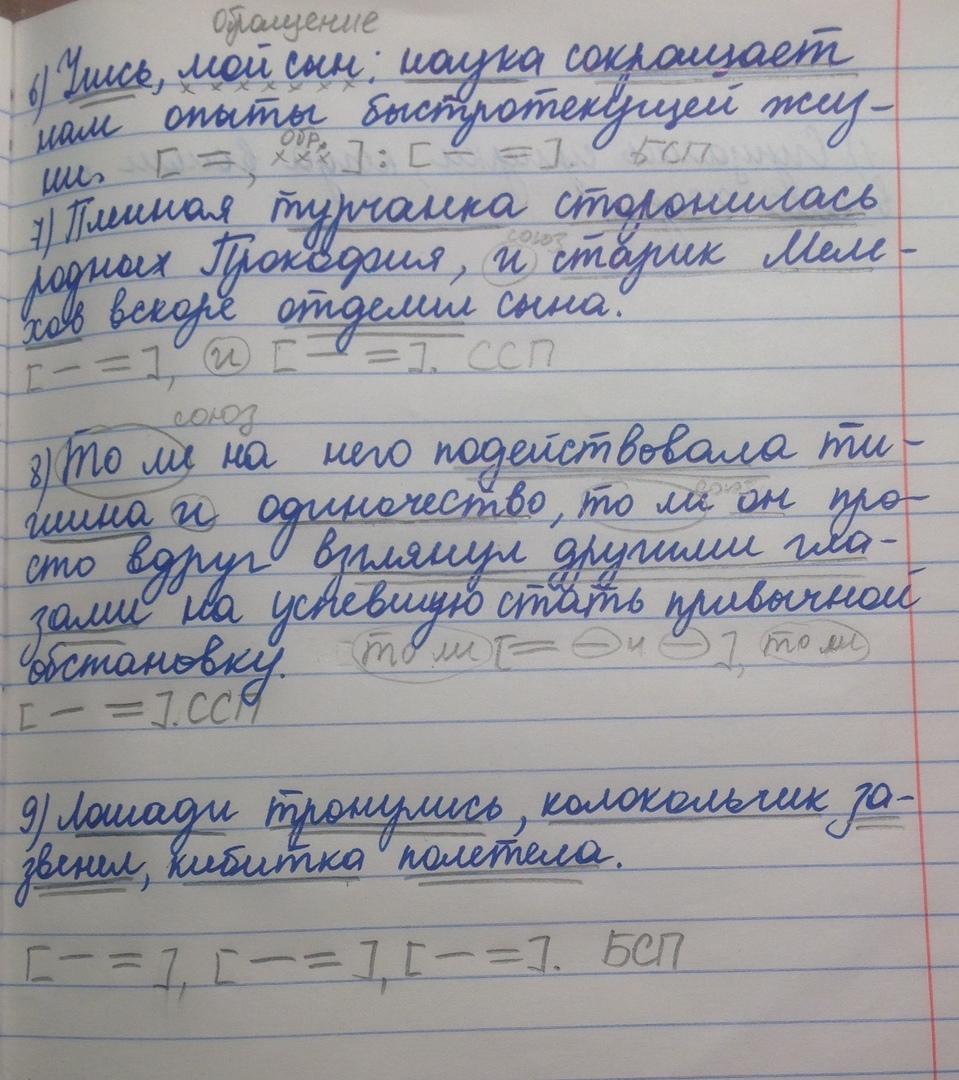 обращение
6) Учись, мой сын: наука сокращает
нам опыты быстротекущей жиз-
ни. [=, обр. xxx]: [– =]. БСП
7) Пленная турчанка сторонилась
союз
родных Прокофия, и старик Меле-
хов вскоре отделил сына.
[– =], и [– =]. ССП
союз
8) То ли на него подействовала ти-
союз
шина и одиночество, то ли он про-
сто вдруг взглянул другими гла-
зами на успевшую стать привычной
обстановку. то ли [= – и –], то ли
[– =]. ССП
9) Лошади тронулись, колокольчик за-
звенел, кибитка полетела.
[– =], [– =], [– =]. БСП